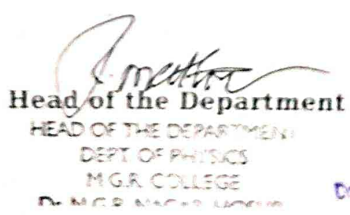 Head of the Department
HEAD OF THE DEPARTMENT
DEPT OF PHYSICS
M.G.R. COLLEGE
Dr. M.G.R. NAGAR, HOSUR